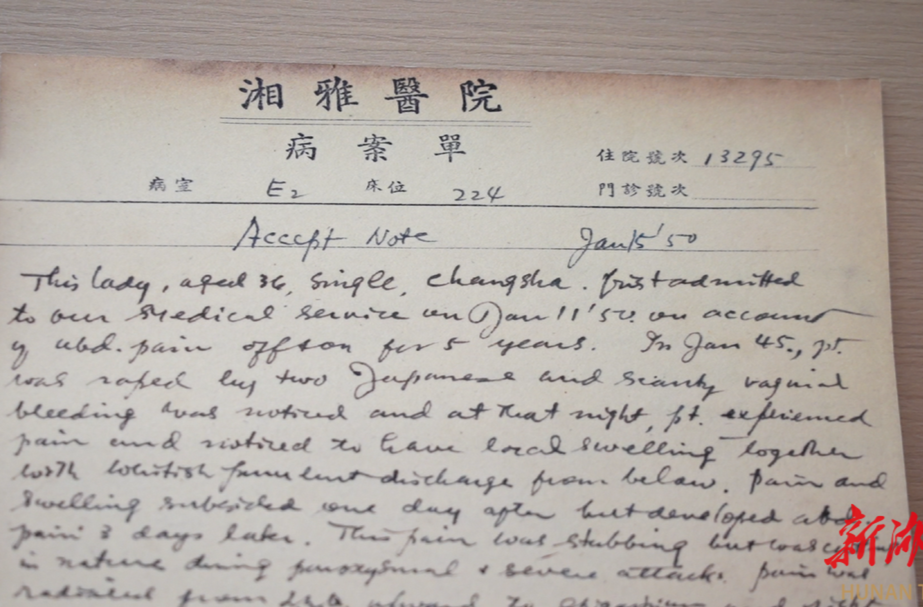 湘雅醫院
病案單
住院號次 13295
病室 E2 床位 224 門診號次
Accept Note Jan 15 '50
This lady, aged 36, single, Changsha. first admitted
to our medical service on Jan 11 '50. on account
of abd. pain off & on for 5 years. In Jan 45., pt.
was raped by two Japanese and scanty vaginal
bleeding was noticed and at that night, pt. experienced
pain and noticed to have local swelling together
with whitish purulent discharge from below. Pain and
swelling subsided one day after but developed abd.
pain 3 days later. This pain was stabbing but was
in nature during paroxysmal & severe attacks. Pain was
radiated from
新湖
HUNAN